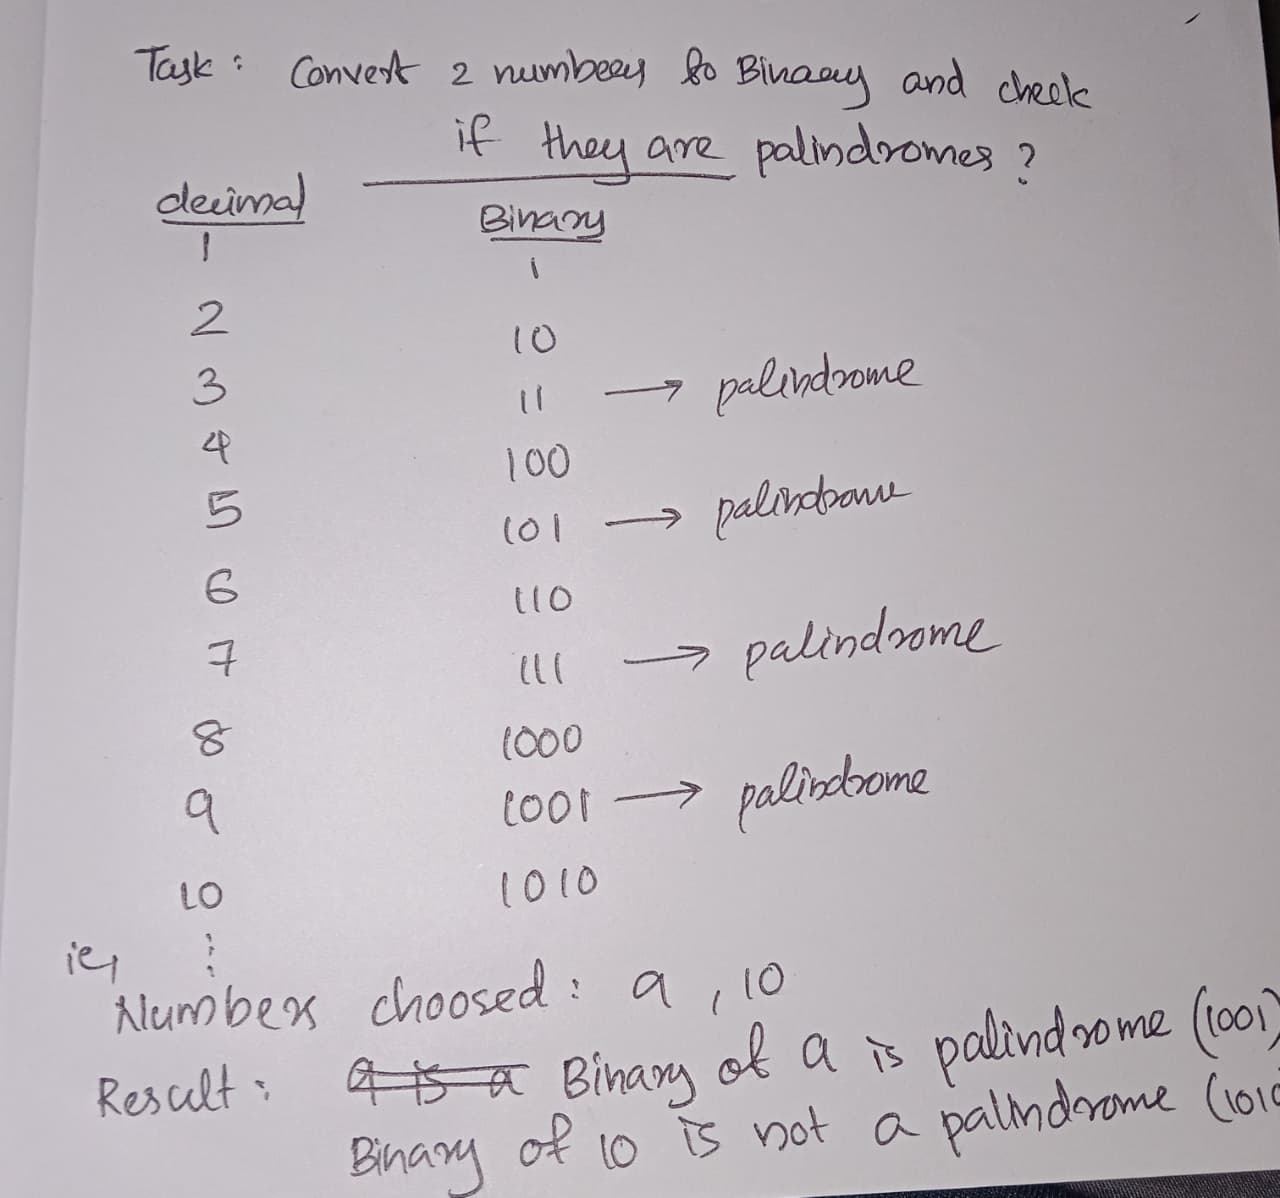 Task : Convert 2 numbers to Binary and check
if they are palindromes ?
decimal Binary
1 1
2 10
3 11 → palindrome
4 100
5 101 → palindrome
6 110
7 111 → palindrome
8 1000
9 1001 → palindrome
10 1010
ie,
Numbers choosed : 9 , 10
Result : 9 is a Binary of 9 is palindrome (1001)
Binary of 10 is not a palindrome (1010